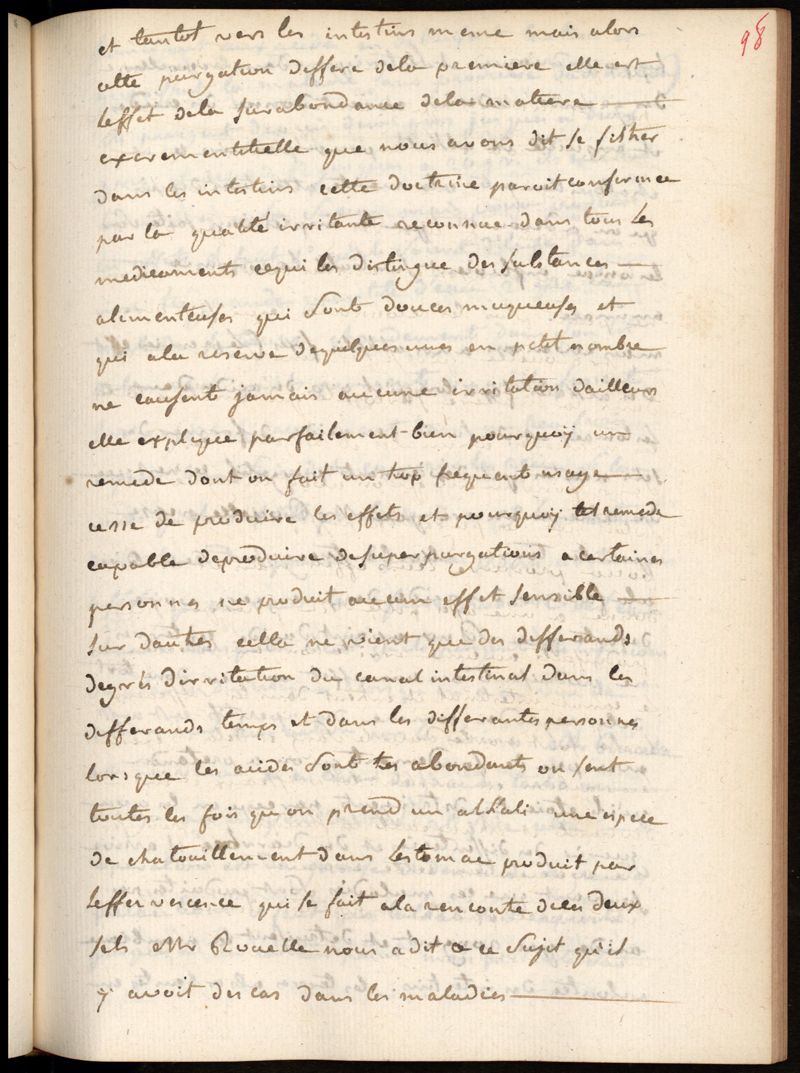 98
et tantot vers les intestins meme mais alors
cette purgation differe dela premiere elle est
leffet dela surabondance dela matiere
excrementitielle que nous avons dit se filtrer
dans les intestins cette doctrine paroit confirmee
par la qualité irritante reconnue dans tous les
medicaments cequi les distingue des substances
alimenteuses qui sont douces muqueuses et
qui ala reserve dequelques unes en petit nombre
ne causent jamais aucune irritation dailleurs
elle explique parfaitement bien pourquoy un
remede dont on fait un trop frequent usage
cesse de produire les effets et pourquoy tel remede
capable deproduire desuperpurgations a certaines
personnes ne produit aucun effet sensible
sur dautres cella ne vient que des differands
degrés dirritation du canal intestinal dans les
differands temps et dans les differantes personnes
lorsque les acides sont tres abondants on sent
toutes les fois que on prend un alkali une espece
de chatouillement dans lestomac produit par
leffervescence qui se fait ala rencontre deces deux
sels Mr Rouelle nous a dit a ce sujet qu'il
y avoit des cas dans les maladies